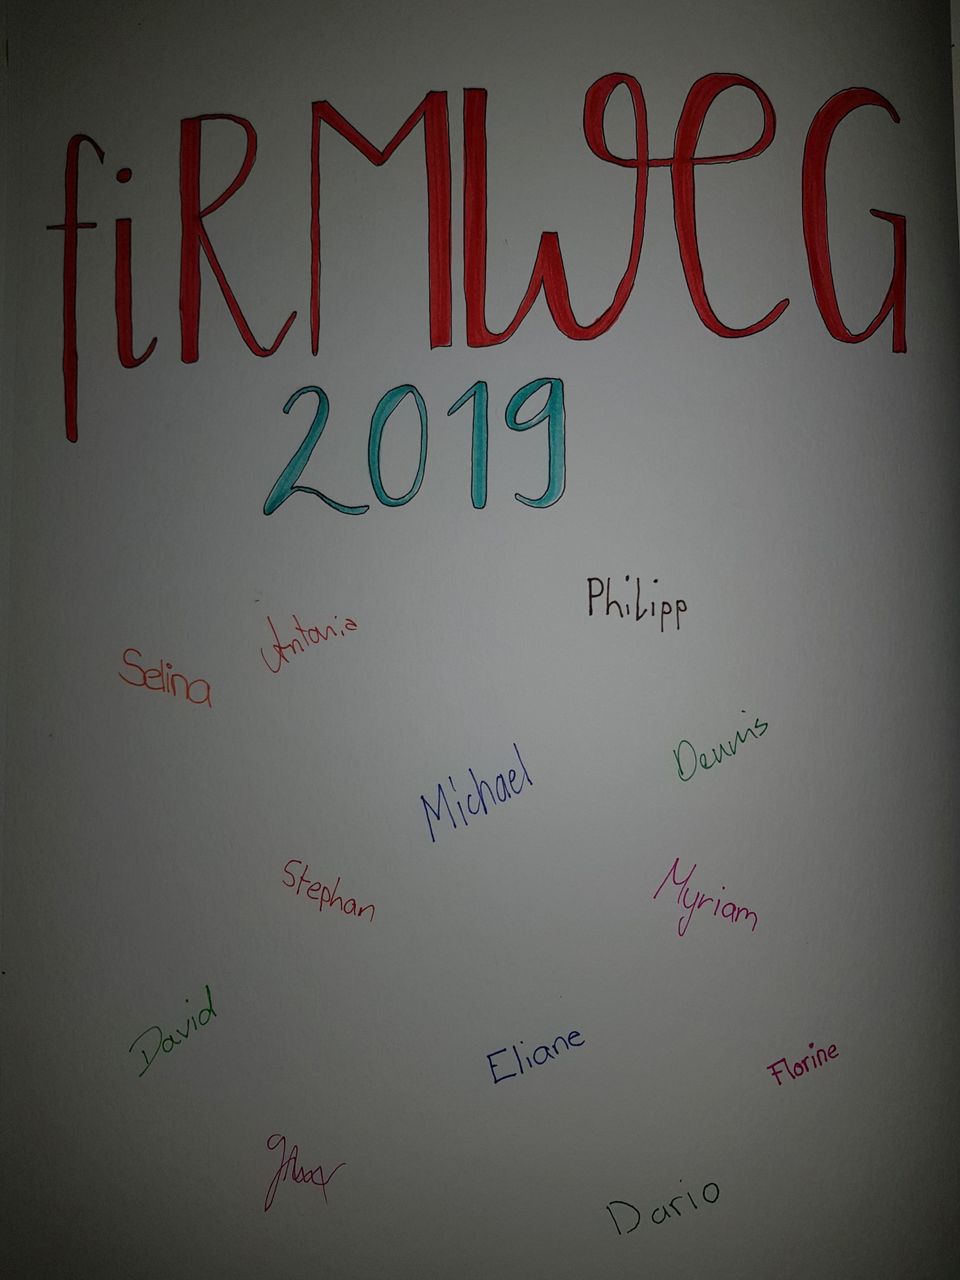 fiRMWEG
2019
Philipp
Antonia
Selina
Dennis
Michael
Stephan
Myriam
David
Eliane
Florine
Dario